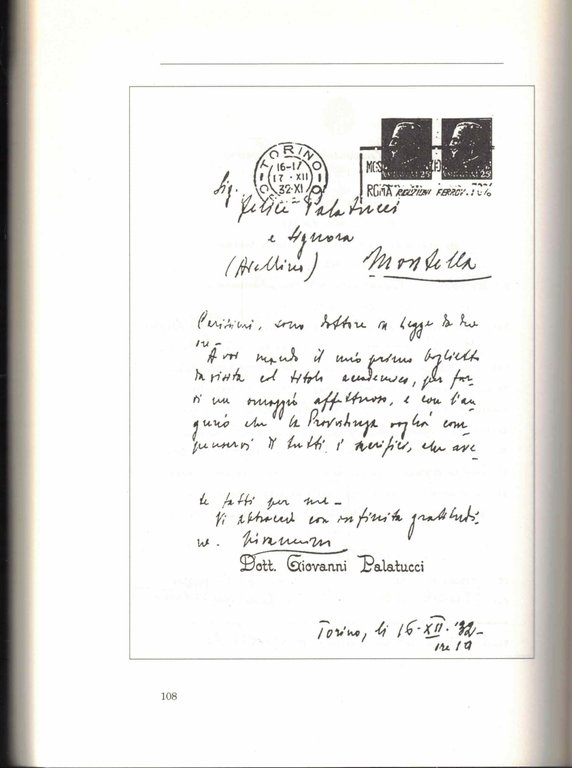 TORINO
16-17
17·XII
32·XI
ROMA RIDUZIONI FERROV. 70%
Sig.
Felice Palatucci
e Signora
(Avellino) Montella
Carissimi, sono dottore in legge da due
ore -
A voi mando il mio primo biglietto
da visita col titolo accademico, per far-
vi un omaggio affettuoso, e con l'au-
gurio che la Provvidenza voglia com-
pensarvi di tutti i sacrifici, che ave-
te fatti per me -
Vi abbraccio con infinita gratitudi-
ne.
Dott. Giovanni Palatucci
Torino, li 16·XII·'32-
ore 19
108